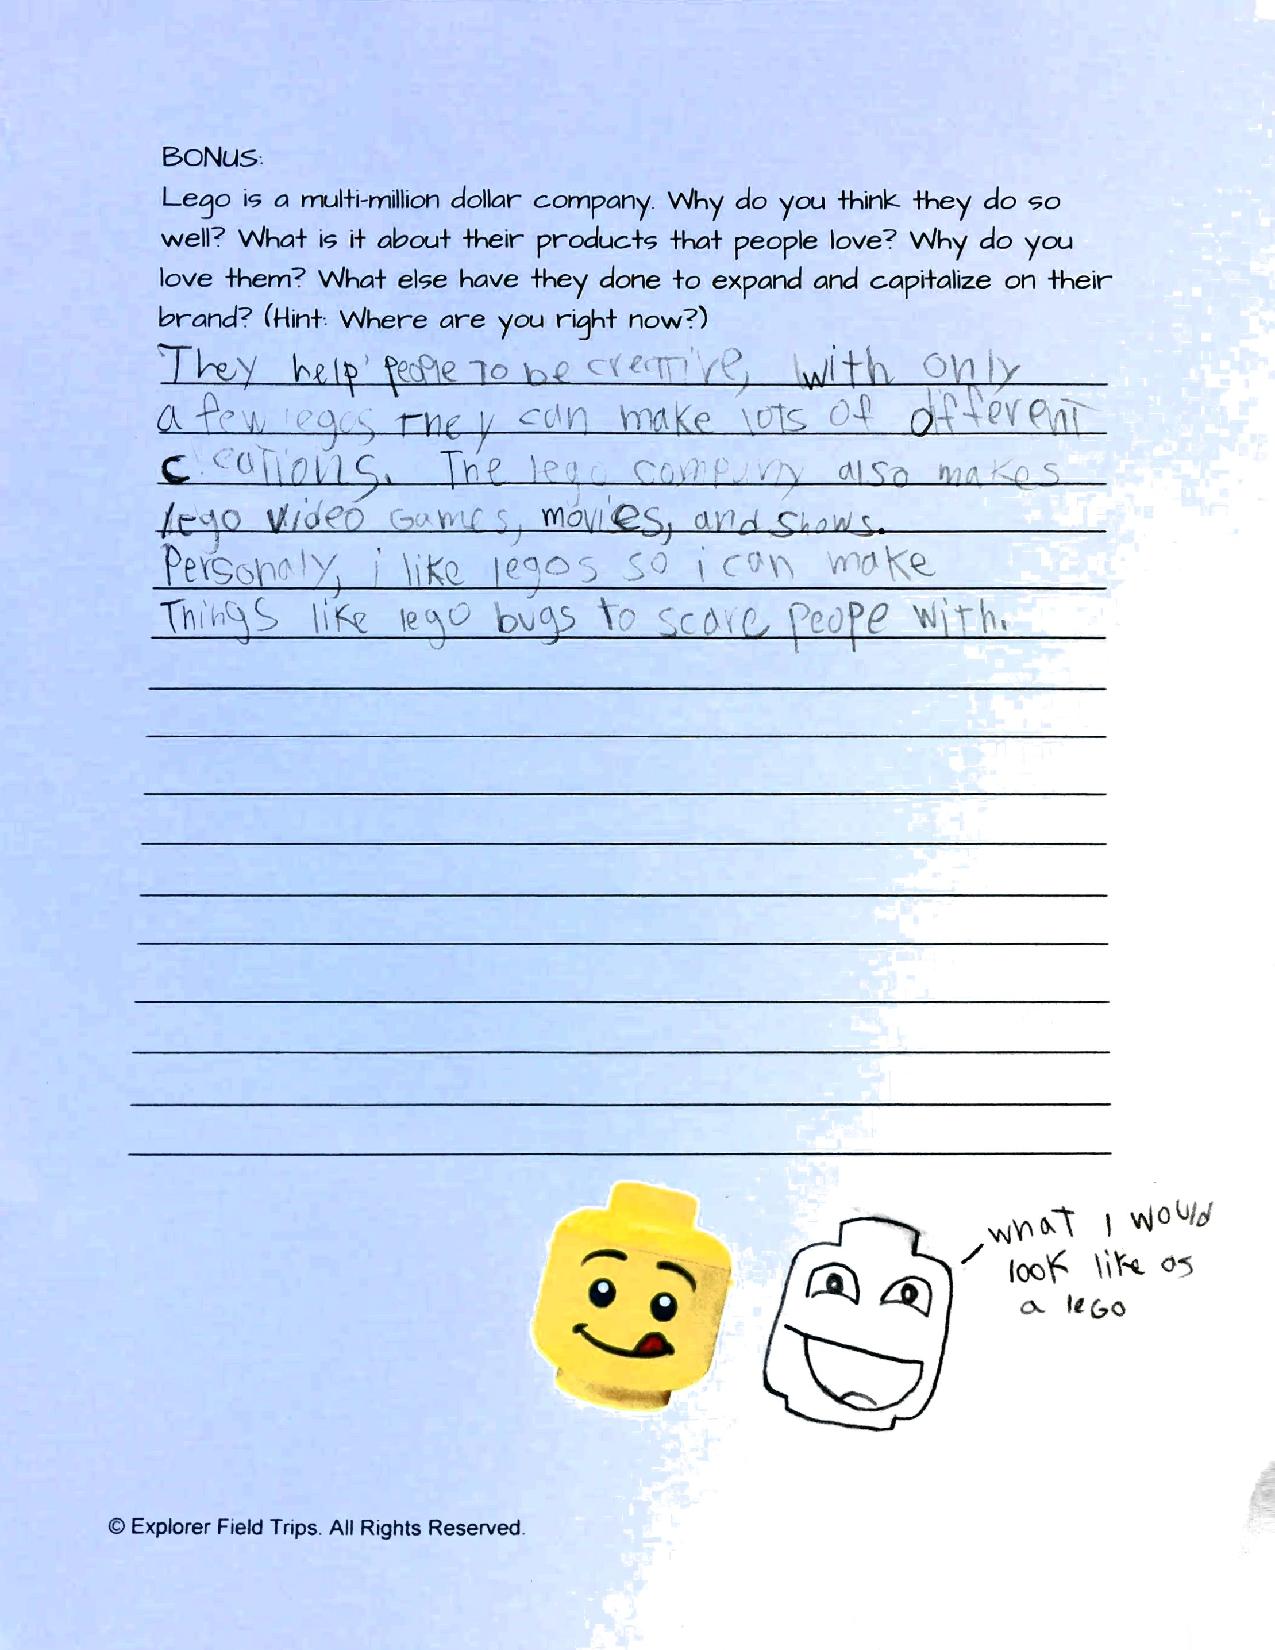 BONUS:
Lego is a multi-million dollar company. Why do you think they do so
well? What is it about their products that people love? Why do you
love them? What else have they done to expand and capitalize on their
brand? (Hint: Where are you right now?)
They help people to be creative, with only
a few legos they can make lots of different
creations. The lego company also makes
lego video Games, movies, and shows.
Personaly, i like legos so i can make
Things like lego bugs to scare peope with.
what I would
look like as
a lego
© Explorer Field Trips. All Rights Reserved.